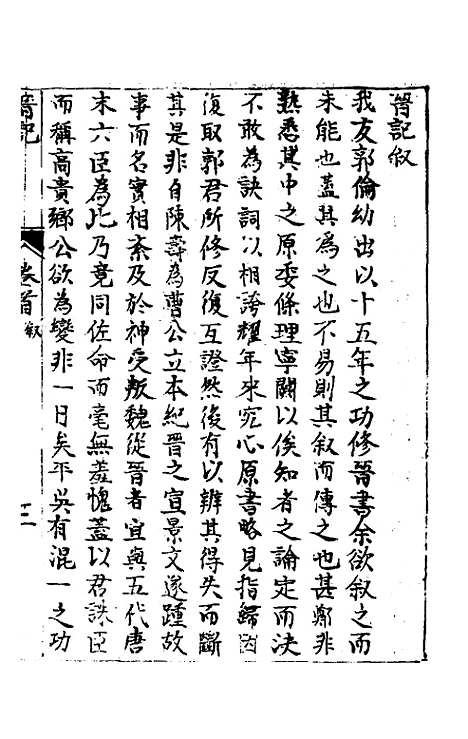 晉記叙
我友郭倫幼出以十五年之功修晉書余欲叙之而
未能也蓋其爲之也不易則其叙而傳之也甚鄭非
熟悉其中之原委條理寧闕以俟知者之論定而決
不敢為訣詞以相誇耀年來究心原書略見指歸因
復取郭君所修反復互證然後有以辨其得失而斷
其是非自陳壽為曹公立本紀晉之宣景文遂踵故
事而名實相紊及於神受叛魏從晉者宜與五代唐
末六臣為比乃竟同佐命而毫無羞愧蓋以君誅臣
而稱高貴鄉公欲為變非一日矣平吳有混一之功
晉記
卷首
叙